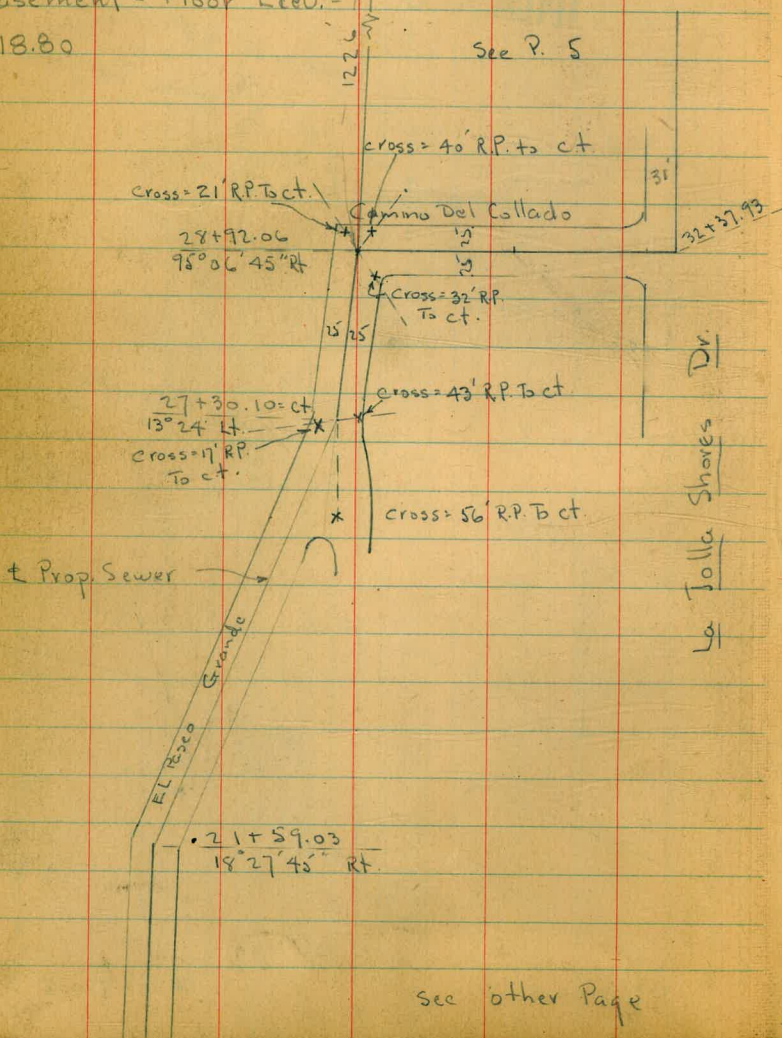 Floor Elev. -
18.80
122.6'
See P. 5
cross = 40' R.P. to ct.
31'
Cross = 21' R.P. To ct.
Camino Del Collado
28+92.06
95° 06' 45" Rt
25' 25'
32+37.93
Cross = 32' R.P.
To ct.
25 25
27+30.10 = ct
13° 24' Lt.
cross = 43' R.P. To ct
cross = 17' R.P.
To ct.
cross = 56' R.P. To ct.
La Jolla Shores Dr.
℄ Prop. Sewer
EL Paseo Grande
21+59.03
18° 27' 45" Rt.
see other Page